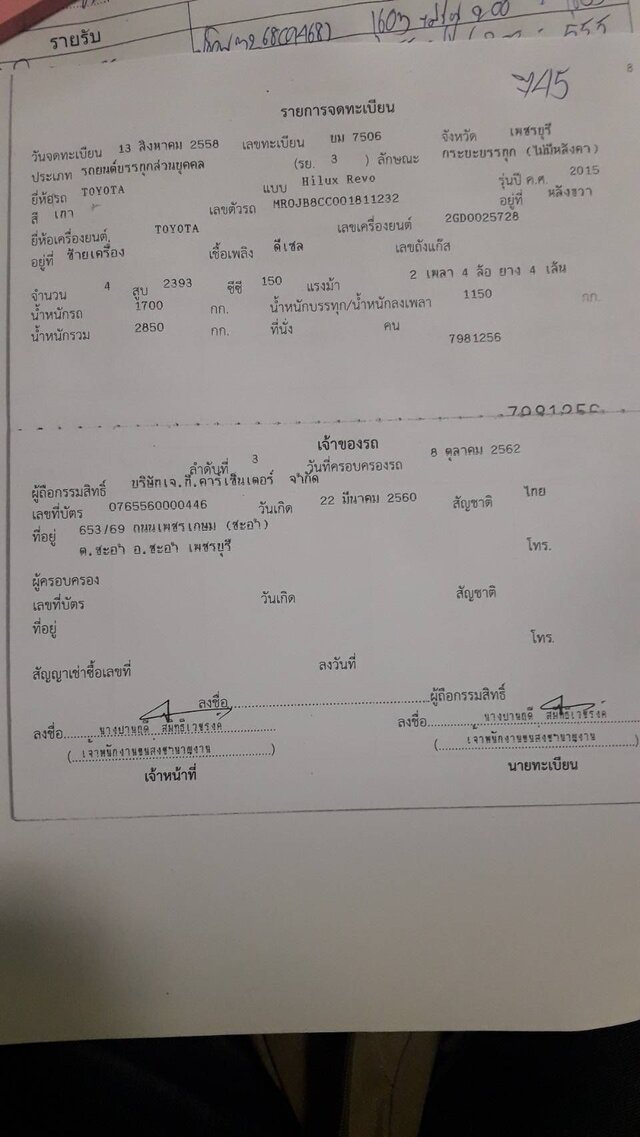 รายรับ
745
8
รายการจดทะเบียน
วันจดทะเบียน 13 สิงหาคม 2558 เลขทะเบียน ยม 7506 จังหวัด เพชรบุรี
ประเภท รถยนต์บรรทุกส่วนบุคคล (รย. 3 ) ลักษณะ กระบะบรรทุก (ไม่มีหลังคา)
ยี่ห้อรถ TOYOTA แบบ Hilux Revo รุ่นปี ค.ศ. 2015
สี เทา เลขตัวรถ MR0JB8CC001811232 อยู่ที่ หลังขวา
ยี่ห้อเครื่องยนต์ TOYOTA เลขเครื่องยนต์ 2GD0025728
อยู่ที่ ซ้ายเครื่อง เชื้อเพลิง ดีเซล เลขถังแก๊ส
จำนวน 4 สูบ 2393 ซีซี 150 แรงม้า 2 เพลา 4 ล้อ ยาง 4 เส้น
น้ำหนักรถ 1700 กก. น้ำหนักบรรทุก/น้ำหนักลงเพลา 1150 กก.
น้ำหนักรวม 2850 กก. ที่นั่ง คน
7981256
7981256
เจ้าของรถ
ลำดับที่ 3 วันที่ครอบครองรถ 8 ตุลาคม 2562
ผู้ถือกรรมสิทธิ์ บริษัทเจ.ที.คาร์เซ็นเตอร์ จำกัด
เลขที่บัตร 0765560000446 วันเกิด 22 มีนาคม 2560 สัญชาติ ไทย
ที่อยู่ 653/69 ถนนเพชรเกษม (ชะอำ)
ต.ชะอำ อ.ชะอำ เพชรบุรี โทร.
ผู้ครอบครอง
เลขที่บัตร วันเกิด สัญชาติ
ที่อยู่
โทร.
สัญญาเช่าซื้อเลขที่ ลงวันที่
ลงชื่อ ผู้ถือกรรมสิทธิ์
ลงชื่อ นางปานฤดี ลงชื่อ นางปานฤดี
(เจ้าพนักงานขนส่งชำนาญงาน) (เจ้าพนักงานขนส่งชำนาญงาน)
เจ้าหน้าที่ นายทะเบียน